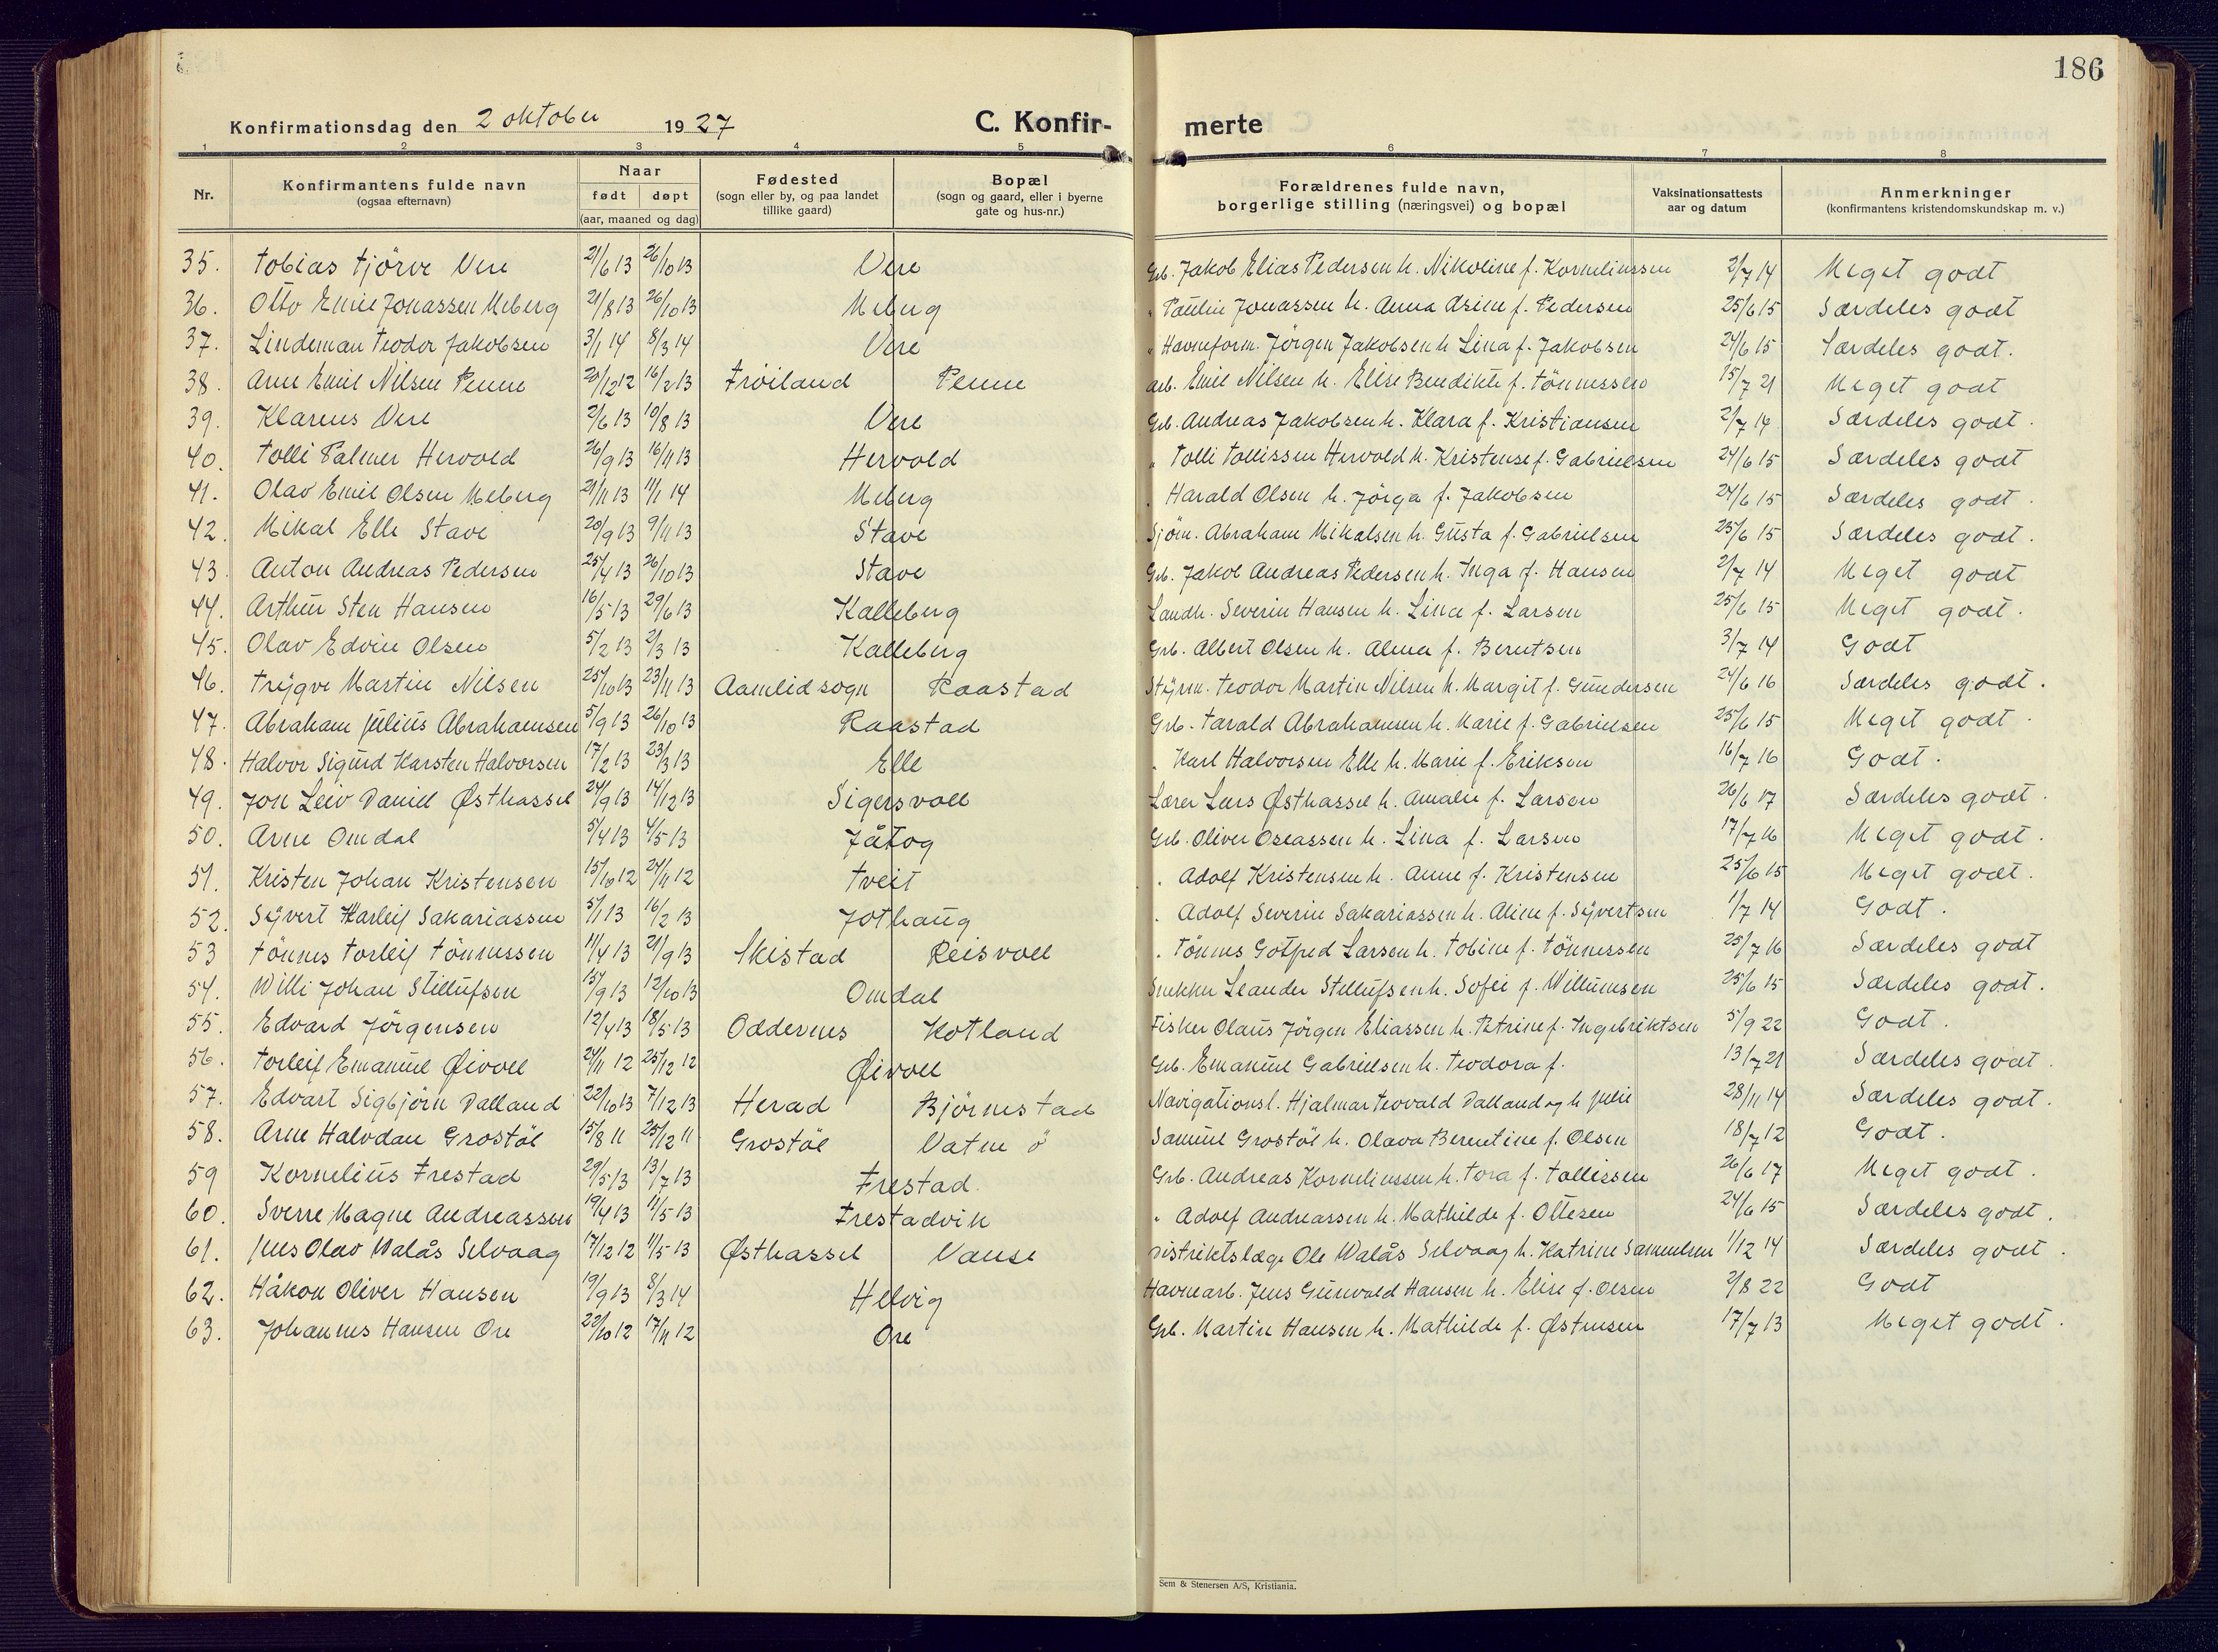 186
Konfirmationsdag den 2 oktober 1927 C. Konfir- merte
1 2 3 4 5 6 7 8
Nr. Konfirmantens fulde navn (ogsaa efternavn) Naar født døpt (aar, maaned og dag) Fødested (sogn eller by, og paa landet tillike gaard) Bopæl (sogn og gaard, eller i byerne gate og hus-nr.) Forældrenes fulde navn, borgerlige stilling (næringsvei) og bopæl Vaksinationsattests aar og datum Anmerkninger (konfirmantens kristendomskundskap m. v.)
35. Tobias Tjörve Vere 21/6 13 26/10 13 Vere Grb. Jakob Elias Pedersen h. Nikoline f. Korneliussen 2/7 14 Meget godt
36. Otto Emil Jonassen Meberg 21/8 13 26/10 13 Meberg " Paulin Jonassen h. Anna Asine f. Pedersen 25/6 15 Særdeles godt
37. Lindeman Teodor Jakobsen 3/1 14 8/3 14 Vere " Havneform. Jörgen Jakobsen h Lina f. Jakobsen 24/6 15 Særdeles godt.
38. Arne Emil Nilsen Penne 20/12 12 16/2 13 Fröiland Penne arb. Emil Nilsen h. Elise Bendikte f. Tönnessen 15/7 21 Meget godt
39. Klarens Vere 2/6 13 10/8 13 Vere Grb. Andreas Jakobsen h. Klara f. Kristiansen 2/7 14 Særdeles godt.
40. Tolli Palmer Hervold 26/9 13 16/11 13 Hervold " Tolli Tollissen Hervold h. Kristense f. Gabrielsen 24/6 15 Særdeles godt
41. Olav Emil Olsen Meberg 21/11 13 11/1 14 Meberg " Harald Olsen h. Jörga f. Jakobsen 24/6 15 Særdeles godt.
42. Mikal Elle Stave 20/9 13 9/11 13 Stave Sjöm. Abraham Mikalsen h. Gusta f. Gabrielsen 25/6 15 Særdeles godt.
43. Anton Andreas Pedersen 25/4 13 26/10 13 Stave Grb. Jakob Andreas Pedersen h. Inga f. Hansen 2/7 14 Meget godt
44. Arthur Sten Hansen 16/5 13 29/6 13 Kalleberg Landh. Severin Hansen h. Lina f. Larsen 25/6 15 Meget godt.
45. Olav Edvin Olsen 5/2 13 2/3 13 Kalleberg Grb. Albert Olsen h. Alma f. Berntsen 3/7 14 Godt
46. Trygve Martin Nilsen 25/10 13 23/11 13 Aamlid sogn Raastad Styrm. Teodor Martin Nilsen h. Margit f. Gundersen 24/6 16 Særdeles godt.
47. Abraham Julius Abrahamsen 5/9 13 26/10 13 Raastad Grb. Tarald Abrahamsen h. Marie f. Gabrielsen 25/6 15 Meget godt.
48. Halvor Sigurd Karsten Halvorsen 17/2 13 23/3 13 Elle " Karl Halvorsen Elle h. Marie f. Eriksen 16/7 16 Godt.
49. Jon Leiv Daniel Østhassel 24/9 13 14/12 13 Sigersvoll Lærer Lars Østhassel h. Amalie f. Larsen 26/6 17 Særdeles godt.
50. Arne Omdal 5/4 13 4/5 13 Jåtog Grb. Oliver Oseassen h. Lina f. Larsen 17/7 16 Meget godt.
51. Kristen Johan Kristensen 15/10 12 24/11 12 Tveit " Adolf Kristensen h. Anne f. Kristensen 25/6 15 Meget godt.
52. Syvert Karleif Sakariassen 5/1 13 16/2 13 Jothaug " Adolf Severin Sakariassen h. Aline f. Syvertsen 1/7 14 Godt.
53 Tönnes Torleif Tönnessen 11/4 13 21/9 13 Skistad Reisvoll " Tönnes Gotfred Larsen h. Tobine f. Tönnessen 25/7 16 Særdeles godt
54. Willi Johan Stellufsen 15/9 13 12/10 13 Omdal Snekker Leander Stellufsen h. Sofie f. Willumsen 25/6 15 Særdeles godt.
55. Edvard Jörgensen 12/4 13 18/5 13 Oddernes Kotland Fisker Olaus Jörgen Eliassen h. Petrine f. Ingebriktsen 5/9 22 Godt.
56. Torleif Emanuel Øivoll 24/11 12 25/12 12 Øivoll Grb. Emanuel Gabrielsen h. Teodora f. 13/7 21 Særdeles godt.
57. Edvart Sigbjörn Dalland 22/10 13 7/12 13 Herad Björnestad Navigationsl. Hjalmar Teovald Dalland og h Julie 28/11 14 Særdeles godt.
58. Arne Halvdan Grostöl 15/8 11 25/12 11 Grostöl Vatne ö Samuel Grostöl h. Olava Berentine f. Olsen 18/7 12 Godt.
59 Kornelius Frestad 29/5 13 13/7 13 Frestad. Grb. Andreas Korneliussen h. Tora f. Tollissen 26/6 17 Meget godt.
60. Sverre Magne Andreassen 19/4 13 11/5 13 Frestadvik " Adolf Andreassen h. Mathilde f. Ottesen 24/6 15 Særdeles godt.
61. Jens Olav Walås Selvaag 17/12 12 11/5 13 Østhassel Vanse Distriktslæge Ole Walås Selvaag h. Katrine Samuelsen 1/12 14 Særdeles godt.
62. Håkon Oliver Hansen 19/9 13 8/3 14 Helvig Havnearb. Jens Gunvald Hansen h. Elise f. Olsen 2/8 22 Godt
63. Johannes Hansen Ore 22/10 12 17/11 12 Ore Grb. Martin Hansen h. Mathilde f. Østensen 17/7 13 Meget godt.
Sem & Stenersen A/S, Kristiania.